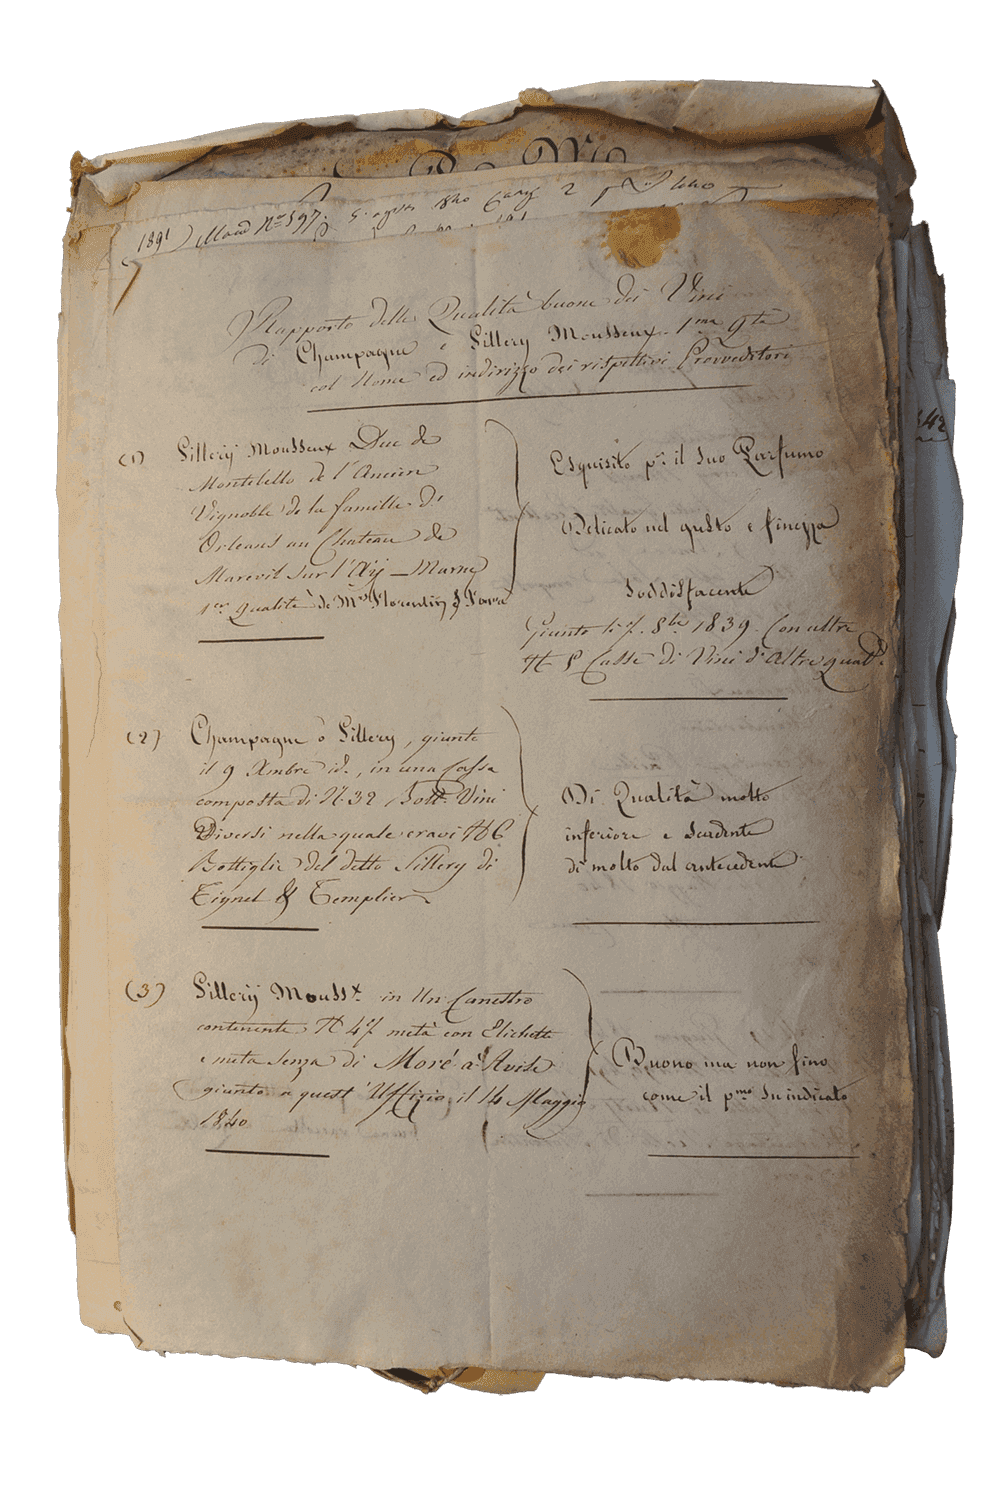 1891) Mand Nº 597: 5 agos 1840
Rapporto delle Qualità buone dei Vini
di Champagne e Sillery Mousseux 1ma Qtà
col Nome ed indirizzo dei rispettivi Provveditori
(1) Sillerÿ Mousseux Duc de
Montebello de l'Ancien
Vignoble de la famille d'
Orleans au Chateau de
Mareuil sur l'Aÿ _ Marne
1er Qualité de Mr Florentin & Favre
Esquisito pr il suo Parfumo
Delicato nel gusto e finezza
Soddisfacente
Giunto li 7 8bre 1839. Con altre
Nº 5 Casse di Vini d'Altre qualà
(2) Champagne ò Sillery, giunte
il 9 Xmbre id., in una Cassa
composta di Nº 32 Bott. Vini
Diversi nella quale eravi Nº 6
Bottiglie del detto Sillery di
& Templier
Di Qualità molto
inferiore e Scadente
di molto dal antecedente
(3) Sillerÿ Mousst. in Un Canestro
contenente Nº 47 metà con Etichette
e metà senza di Moré a Avise
giunto a quest' Uffizio il 14 Maggio
1840
Buono ma non fino
come il pmo Su indicato